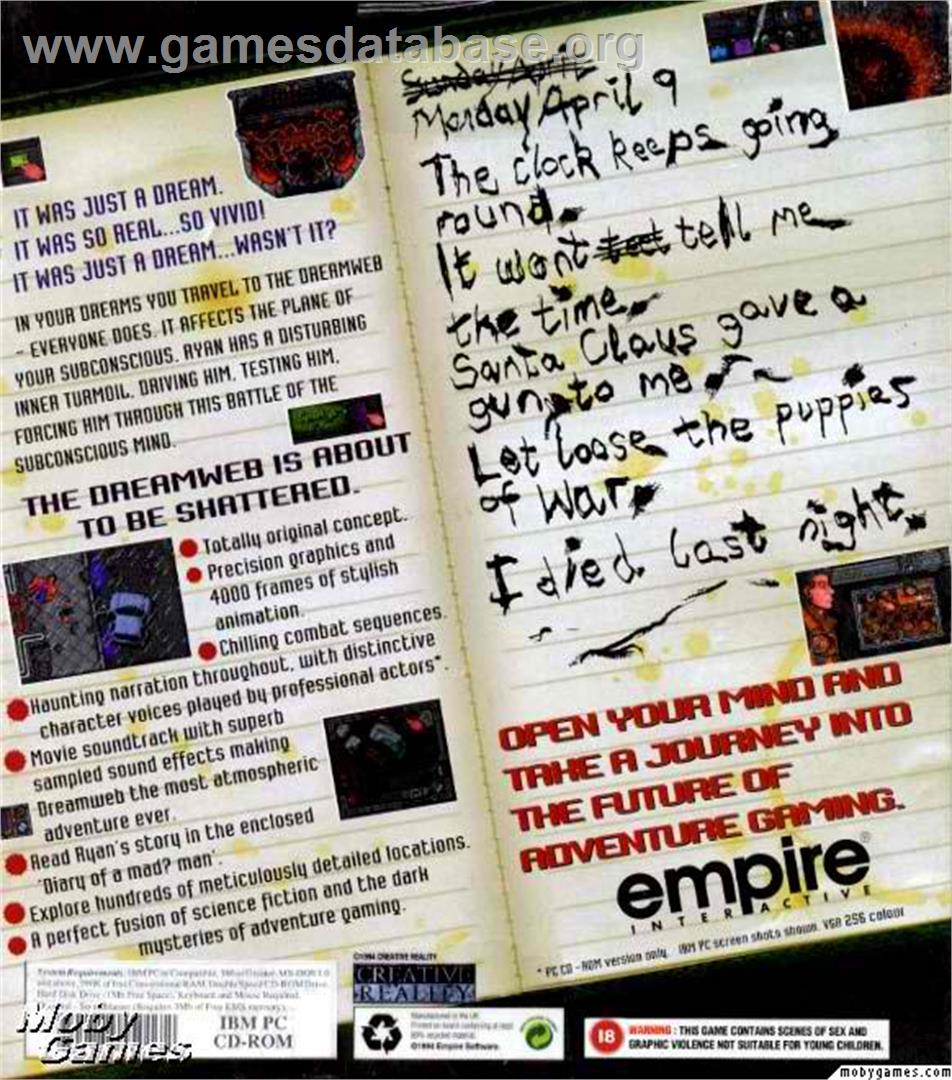 www.gamesdatabase.org
IT WAS JUST A DREAM.
IT WAS SO REAL...SO VIVID!
IT WAS JUST A DREAM...WASN'T IT?
IN YOUR DREAMS YOU TRAVEL TO THE DREAMWEB
- EVERYONE DOES. IT AFFECTS THE PLANE OF
YOUR SUBCONSCIOUS. RYAN HAS A DISTURBING
INNER TURMOIL, DRIVING HIM, TESTING HIM,
FORCING HIM THROUGH THIS BATTLE OF THE
SUBCONSCIOUS MIND.
THE DREAMWEB IS ABOUT
TO BE SHATTERED.
Totally original concept.
Precision graphics and
4000 frames of stylish
animation.
Chilling combat sequences.
Haunting narration throughout, with distinctive
character voices played by professional actors*.
Movie soundtrack with superb
sampled sound effects making
Dreamweb the most atmospheric
adventure ever.
Read Ryan's story in the enclosed
'Diary of a mad? man'.
Explore hundreds of meticulously detailed locations.
A perfect fusion of science fiction and the dark
mysteries of adventure gaming.
Sunday April
Monday April 9
The clock keeps going
round.
It wont tell me
the time.
Santa Claus gave a
gun to me
Let loose the puppies
of War.
I died last night.
OPEN YOUR MIND AND
TAKE A JOURNEY INTO
THE FUTURE OF
ADVENTURE GAMING.
empire
INTERACTIVE
* PC CD-ROM version only. IBM PC screen shots shown. VGA 256 colour
System Requirements:
IBM PC
CD-ROM
©1994 CREATIVE REALITY
CREATIVE
REALITY
Manufactured in the UK
©1994 Empire Software.
18 WARNING : THIS GAME CONTAINS SCENES OF SEX AND
GRAPHIC VIOLENCE NOT SUITABLE FOR YOUNG CHILDREN.
Moby
Games
mobygames.com